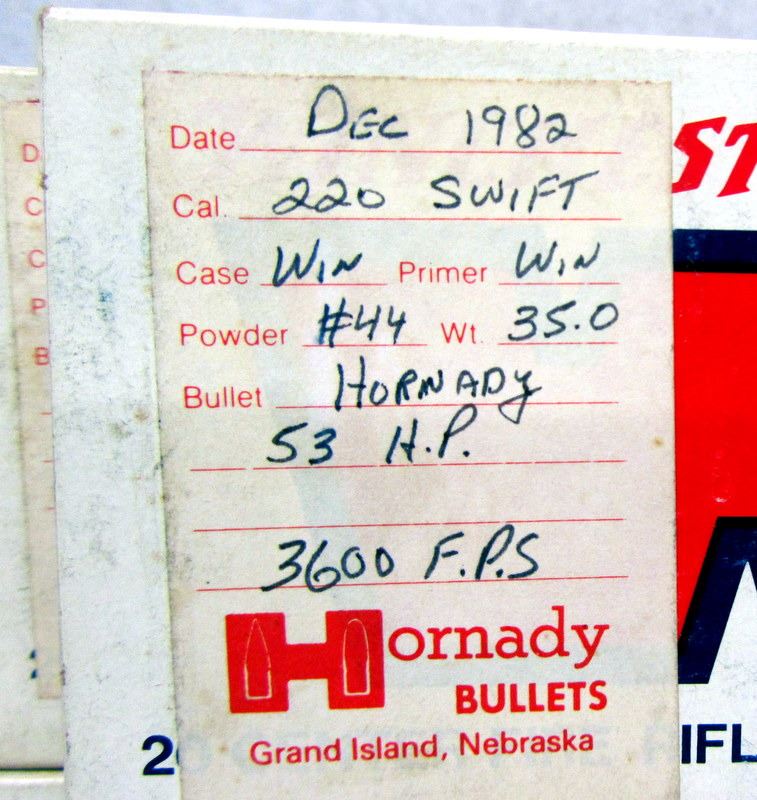 Date Dec 1982
Cal. 220 SWIFT
Case WIN Primer WIN
Powder #44 Wt. 35.0
Bullet HORNADY
53 H.P.
3600 F.P.S
Hornady
BULLETS
Grand Island, Nebraska
ST
2
IFL
D
C
C
P
B